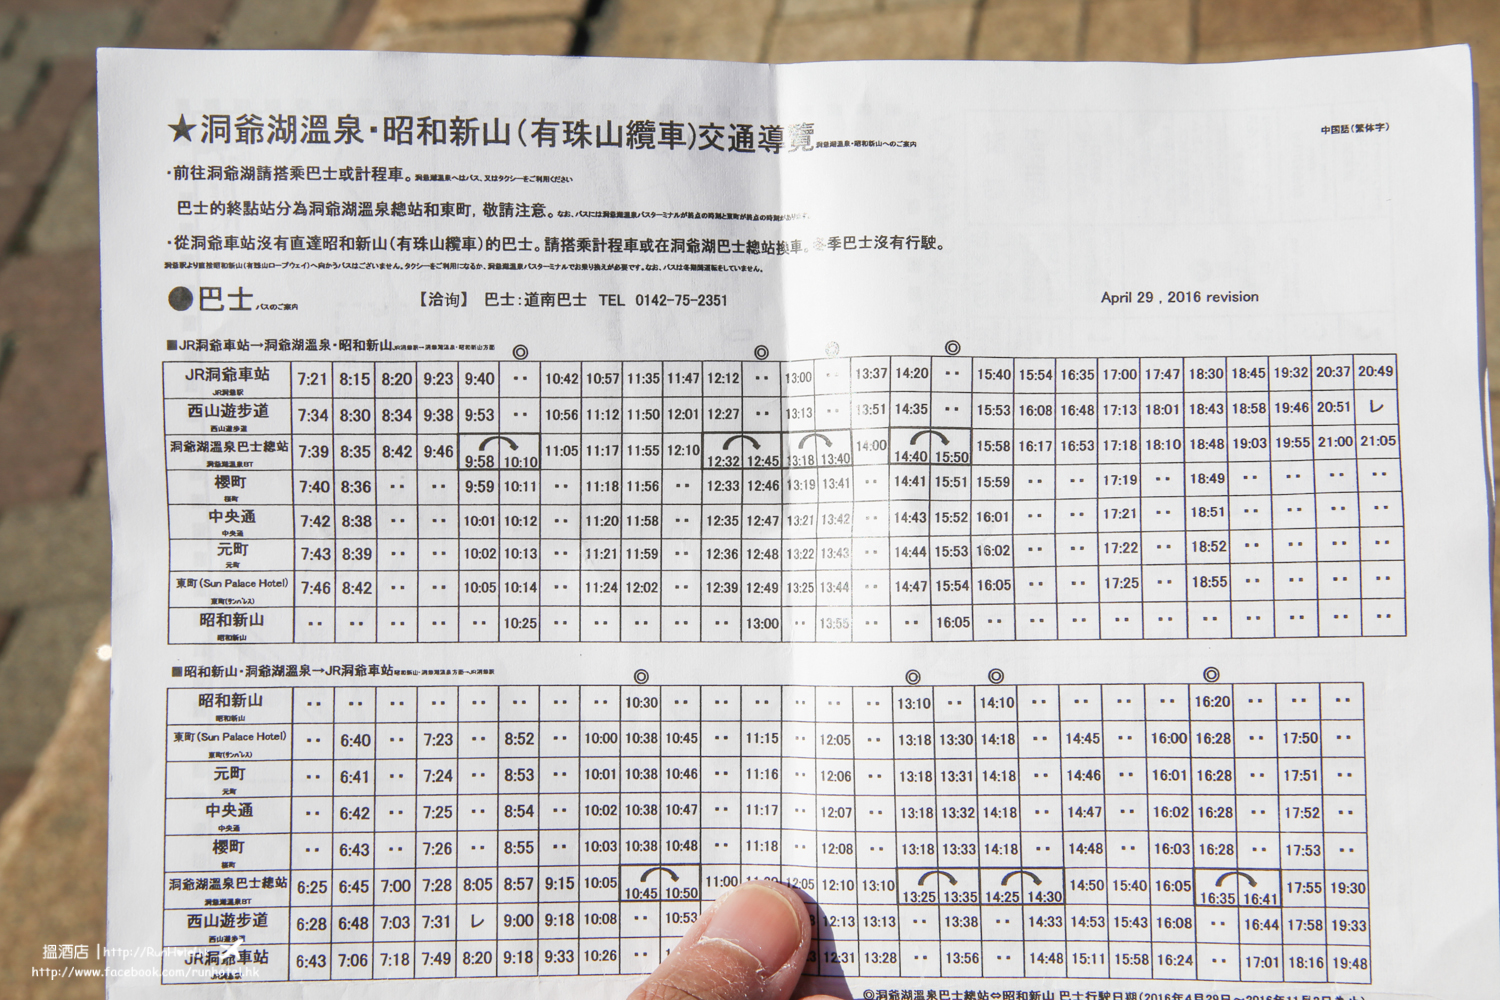 ★洞爺湖溫泉・昭和新山(有珠山纜車)交通導覽 洞爺湖温泉・昭和新山へのご案内
中国語(繁体字)
・前往洞爺湖請搭乘巴士或計程車。洞爺湖温泉へはバス、又はタクシーをご利用ください
巴士的終點站分為洞爺湖溫泉總站和東町, 敬請注意。なお、バスには洞爺湖温泉バスターミナルが終点の時刻と東町が終点の時刻があります。
・從洞爺車站沒有直達昭和新山(有珠山纜車)的巴士。請搭乘計程車或在洞爺湖巴士總站換車。冬季巴士沒有行駛。
洞爺駅より直接昭和新山(有珠山ロープウェイ)へ向かうバスはございません。タクシーをご利用になるか、洞爺湖温泉バスターミナルでお乗り換えが必要です。なお、バスは冬期間運転をしていません。
●巴士 バスのご案内 【洽询】 巴士:道南巴士 TEL 0142-75-2351
April 29 , 2016 revision
■JR洞爺車站→洞爺湖溫泉・昭和新山 JR洞爺駅→洞爺湖温泉・昭和新山方面
◎ ◎ ◎ ◎
JR洞爺車站 7:21 8:15 8:20 9:23 9:40 ‥ 10:42 10:57 11:35 11:47 12:12 ‥ 13:00 ‥ 13:37 14:20 ‥ 15:40 15:54 16:35 17:00 17:47 18:30 18:45 19:32 20:37 20:49
JR洞爺駅
西山遊步道 7:34 8:30 8:34 9:38 9:53 ‥ 10:56 11:12 11:50 12:01 12:27 ‥ 13:13 ‥ 13:51 14:35 ‥ 15:53 16:08 16:48 17:13 18:01 18:43 18:58 19:46 20:51 レ
西山遊歩道
洞爺湖溫泉巴士總站 7:39 8:35 8:42 9:46 9:58 10:10 11:05 11:17 11:55 12:10 12:32 12:45 13:18 13:40 14:00 14:40 15:50 15:58 16:17 16:53 17:18 18:10 18:48 19:03 19:55 21:00 21:05
洞爺湖温泉BT
櫻町 7:40 8:36 ‥ ‥ 9:59 10:11 ‥ 11:18 11:56 ‥ 12:33 12:46 13:19 13:41 ‥ 14:41 15:51 15:59 ‥ ‥ 17:19 ‥ 18:49 ‥ ‥ ‥ ‥
桜町
中央通 7:42 8:38 ‥ ‥ 10:01 10:12 ‥ 11:20 11:58 ‥ 12:35 12:47 13:21 13:42 ‥ 14:43 15:52 16:01 ‥ ‥ 17:21 ‥ 18:51 ‥ ‥ ‥ ‥
中央通
元町 7:43 8:39 ‥ ‥ 10:02 10:13 ‥ 11:21 11:59 ‥ 12:36 12:48 13:22 13:43 ‥ 14:44 15:53 16:02 ‥ ‥ 17:22 ‥ 18:52 ‥ ‥ ‥ ‥
元町
東町(Sun Palace Hotel) 7:46 8:42 ‥ ‥ 10:05 10:14 ‥ 11:24 12:02 ‥ 12:39 12:49 13:25 13:44 ‥ 14:47 15:54 16:05 ‥ ‥ 17:25 ‥ 18:55 ‥ ‥ ‥ ‥
東町(サンパレス)
昭和新山 ‥ ‥ ‥ ‥ ‥ 10:25 ‥ ‥ ‥ ‥ ‥ 13:00 ‥ 13:55 ‥ ‥ 16:05 ‥ ‥ ‥ ‥ ‥ ‥ ‥ ‥ ‥ ‥
昭和新山
■昭和新山・洞爺湖溫泉→JR洞爺車站 昭和新山・洞爺湖温泉方面→JR洞爺駅
◎ ◎ ◎ ◎
昭和新山 ‥ ‥ ‥ ‥ ‥ ‥ ‥ ‥ 10:30 ‥ ‥ ‥ ‥ ‥ ‥ 13:10 ‥ 14:10 ‥ ‥ ‥ ‥ 16:20 ‥ ‥ ‥
昭和新山
東町(Sun Palace Hotel) ‥ 6:40 ‥ 7:23 ‥ 8:52 ‥ 10:00 10:38 10:45 ‥ 11:15 ‥ 12:05 ‥ 13:18 13:30 14:18 ‥ 14:45 ‥ 16:00 16:28 ‥ 17:50 ‥
東町(サンパレス)
元町 ‥ 6:41 ‥ 7:24 ‥ 8:53 ‥ 10:01 10:38 10:46 ‥ 11:16 ‥ 12:06 ‥ 13:18 13:31 14:18 ‥ 14:46 ‥ 16:01 16:28 ‥ 17:51 ‥
元町
中央通 ‥ 6:42 ‥ 7:25 ‥ 8:54 ‥ 10:02 10:38 10:47 ‥ 11:17 ‥ 12:07 ‥ 13:18 13:32 14:18 ‥ 14:47 ‥ 16:02 16:28 ‥ 17:52 ‥
中央通
櫻町 ‥ 6:43 ‥ 7:26 ‥ 8:55 ‥ 10:03 10:38 10:48 ‥ 11:18 ‥ 12:08 ‥ 13:18 13:33 14:18 ‥ 14:48 ‥ 16:03 16:28 ‥ 17:53 ‥
桜町
洞爺湖溫泉巴士總站 6:25 6:45 7:00 7:28 8:05 8:57 9:15 10:05 10:45 10:50 11:00 12:05 12:10 13:10 13:25 13:35 14:25 14:30 14:50 15:40 16:05 16:35 16:41 17:55 19:30
洞爺湖温泉BT
西山遊步道 6:28 6:48 7:03 7:31 レ 9:00 9:18 10:08 ‥ 10:53 12:13 13:13 ‥ 13:38 ‥ 14:33 14:53 15:43 16:08 ‥ 16:44 17:58 19:33
西山遊歩道
JR洞爺車站 6:43 7:06 7:18 7:49 8:20 9:18 9:33 10:26 ‥ 12:31 13:28 ‥ 13:56 ‥ 14:48 15:11 15:58 16:24 ‥ 17:01 18:16 19:48
◎洞爺湖溫泉巴士總站⇔昭和新山 巴士行駛日期(2016年4月29日~2016年11月
搵酒店 | http://RunHotel.hk
http://www.facebook.com/runhotel.hk